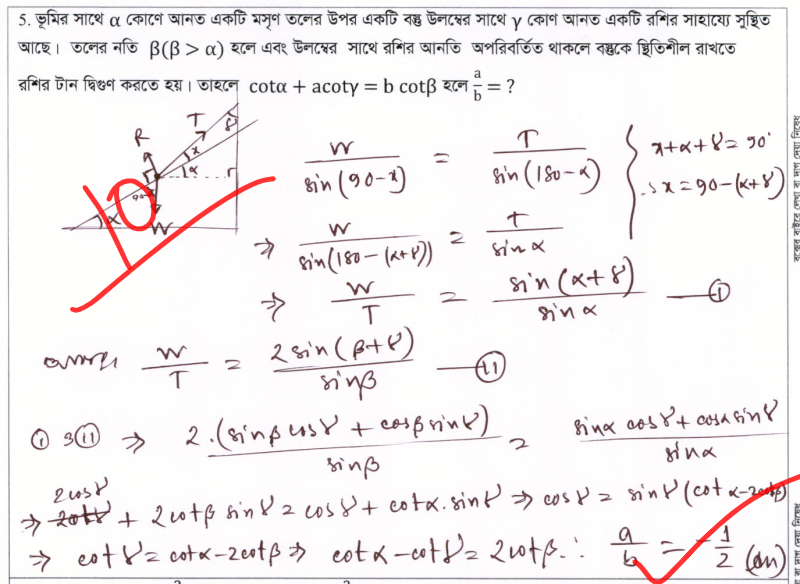 5. ভূমির সাথে α কোণে আনত একটি মসৃণ তলের উপর একটি বস্তু উলম্বের সাথে γ কোণ আনত একটি রশির সাহায্যে সুস্থিত
আছে। তলের নতি β(β > α) হলে এবং উলম্বের সাথে রশির আনতি অপরিবর্তিত থাকলে বস্তুকে স্থিতিশীল রাখতে
রশির টান দ্বিগুণ করতে হয়। তাহলে cotα + acotγ = b cotβ হলে a/b = ?
R T γ x α
90-x α W
10
W/sin(90-x) = T/sin(180-α)
x+α+γ=90°
∴ x=90-(α+γ)
⇒ W/sin(180-(α+γ)) = T/sinα
⇒ W/T = sin(α+γ)/sinα —(i)
W/T = 2sin(β+γ)/sinβ —(ii)
(i) ও (ii) ⇒ 2.(sinβcosγ + cosβsinγ)/sinβ = sinα cosγ + cosα sinγ/sinα
⇒ 2cosγ + 2cotβ sinγ = cosγ + cotα.sinγ ⇒ cosγ = sinγ(cotα-2cotβ)
⇒ cotγ = cotα-2cotβ ⇒ cotα-cotγ = 2cotβ ∴ a/b = -1/2 (An)